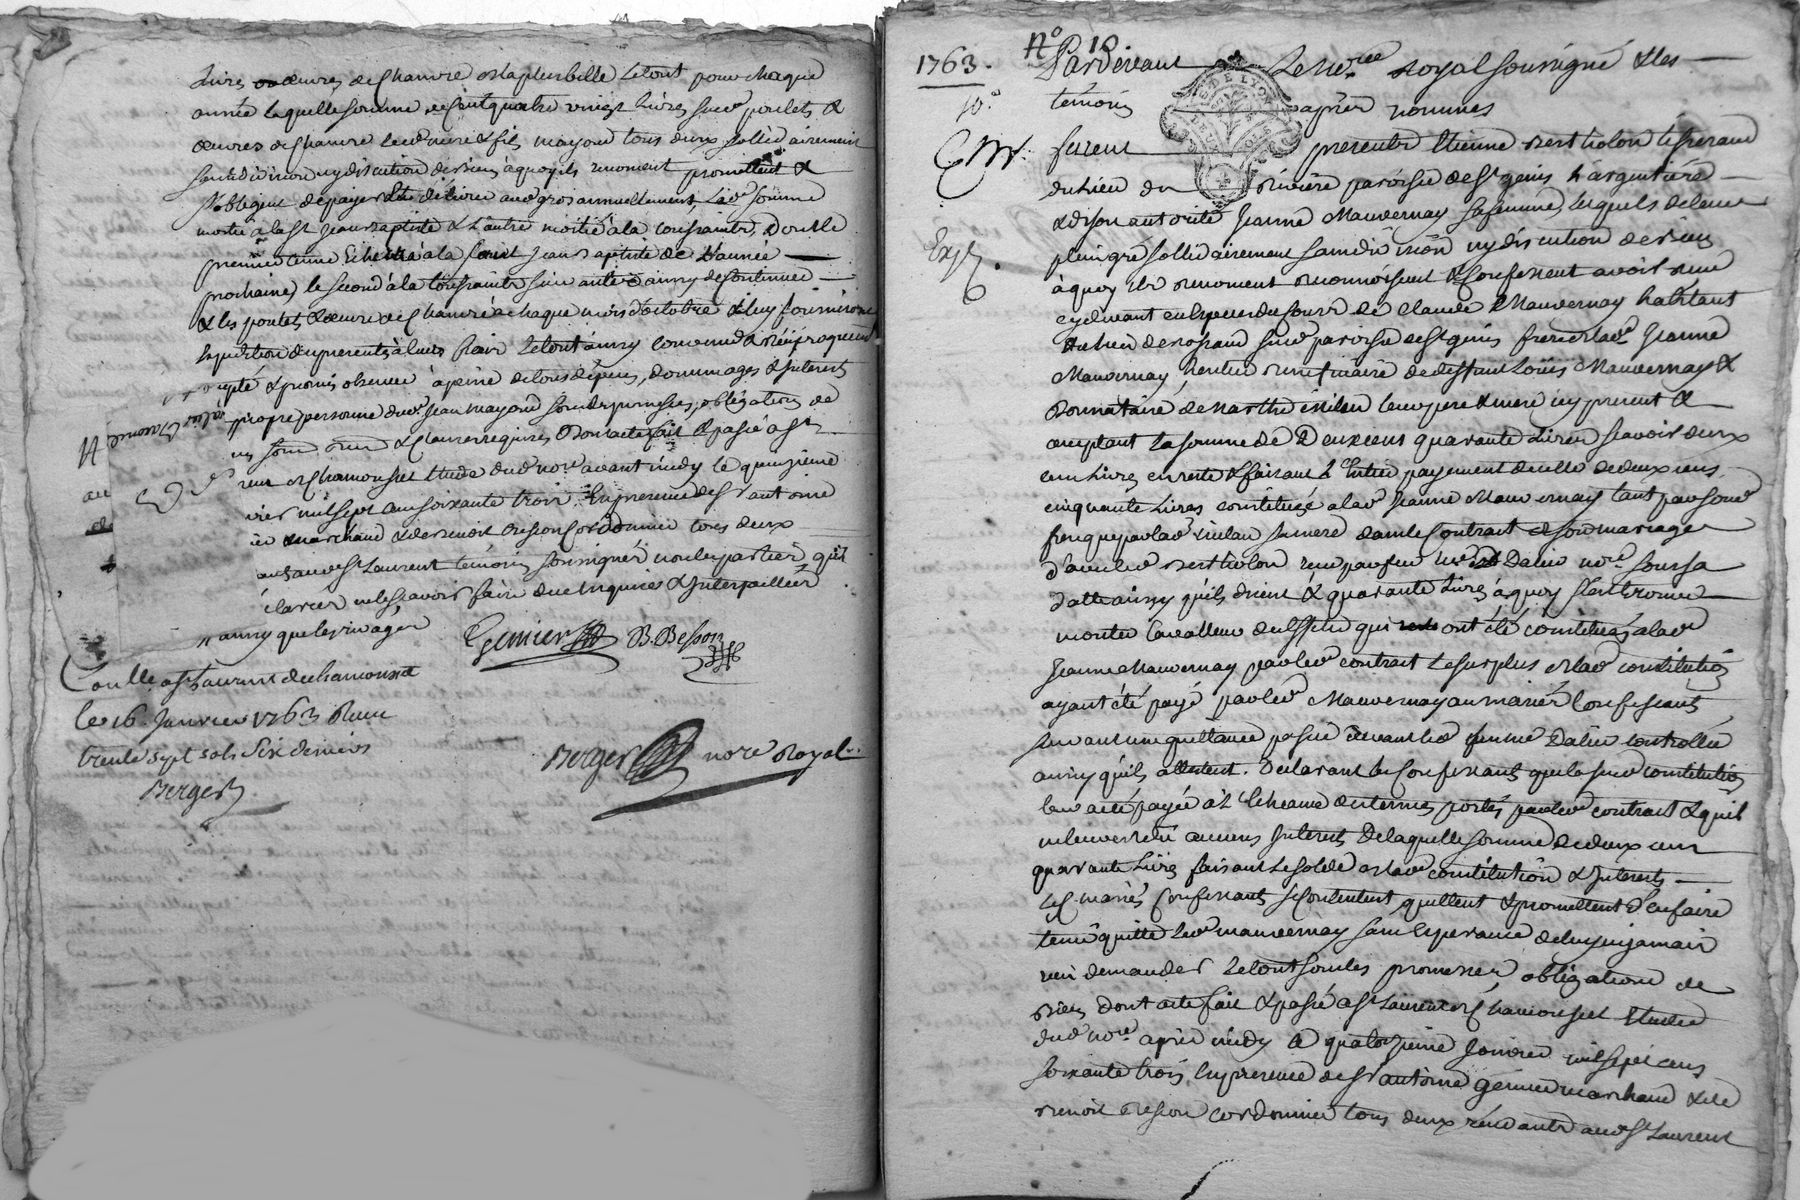 Livres œuvres de Chanvre et la plus belle le tout pour chaque
année laquelle somme de cent quatre vingt livres susd poulets &
œuvres de Chanvre lesd mere & fils mayoud tous deux sollidairement
sans division ny discution de biens à quoy ils renoncent promettent &
s'obligent de payer & de délivrer aud gros annuellement Lad somme
moitié à la St Jean Baptiste & L'autre moitié à la toussaints, dont le
premier terme Echerra à la saint Jean Baptiste de L'année
prochaine, le second à la toussaints suivante & ainsy de continuer
& les poulets & œuvre de Chanvre à chaque mois d'octobre & luy fourniront
Expedition du presents à leurs frais Le tout ainsy convenu & réciproquement
accepté & promis observer à peine de tous dépens, dommages & Interests
propre personne dud Jean mayoud sous les promesses, obligations de
& Clauses requises Dont acte fait & passé à St
rent de Chamousset Etude dud nore avant midy le quinzieme
vier mil sept cens soixante trois En presence de Sr antoine
ier marchand & de Benoit Besson Cordonnier tous deux
aud St Laurent temoins soussignés non les parties qui
de ce Enquises & Interpellées
ainsy que les rivages
Genier B. Besson
Conllé à St Laurent de chamousset
le 16 Janvier 1763 Reçu
trente sept sols Six deniers
Berger
Berger nore Royal
No 10
1763. Pardevant Le nore royal soussigné & les
10e temoins après nommés
furent presents Etienne Bertholon tisserand
du Lieu de riviére paroisse de St genis L'argentiére
& de son autorité Jeanne Mauvernay sa femme, lesquels de leur
Exp.
plein gré sollidairement sans division ny discution de biens
à quoy ils renoncent reconnoissent & Confessent avoir reçu
cydevant en Espèces du Cours de Claude Mauvernay habitant
au Lieu de susd paroisse de St genis frere de lad Jeanne
Mauvernay, heritier de deffunt Loüis Mauvernay &
Donnataire de marthe leurs pere & mere icy present &
acceptant La somme de Deux cens quarante Livres sçavoir deux
cens Livres en reste & faisant L'Entier payement de celle de deux cens
cinquante Livres constituée à lad Jeanne Mauvernay tant par sond
pere que par lad sa mere dans le Contrat de son mariage
d'avec led Bertholon reçu par feu Me Dalin nore sous sa
datte ainsy qu'ils disent & quarante Livres à quoy s'est trouvée
monter La valleur des Effets qui ont été constitués à lad
Jeanne Mauvernay par led contrat Le surplus de lad constitution
ayant été payé par led Mauvernay aux mariés Confessants
suivant une quittance passée devant led feu Me Dalin controllée
ainsy qu'ils attestent. Declarant les Confessants que la susd constitution
leur a été payée à L'Echeance des termes portés par led contrat & qu'il
ne leur est dû aucuns Interests De laquelle somme de deux cens
quarante Livres faisant Le solde de lad constitution & Interests
Les mariés Confessants se Contentent quittent & promettent d'En faire
tenir quitte Led mauvernay sans Esperance de luy en jamais
rien demander Le tout sous les promesses, obligations de
biens Dont acte fait & passé à St Laurent de Chamousset Etude
dud nore après midy Le quatorzieme Janvier mil sept cens
soixante trois En presence de Sr antoine Génier marchand & de
Benoit Besson cordonnier tous deux résidants aud St Laurent